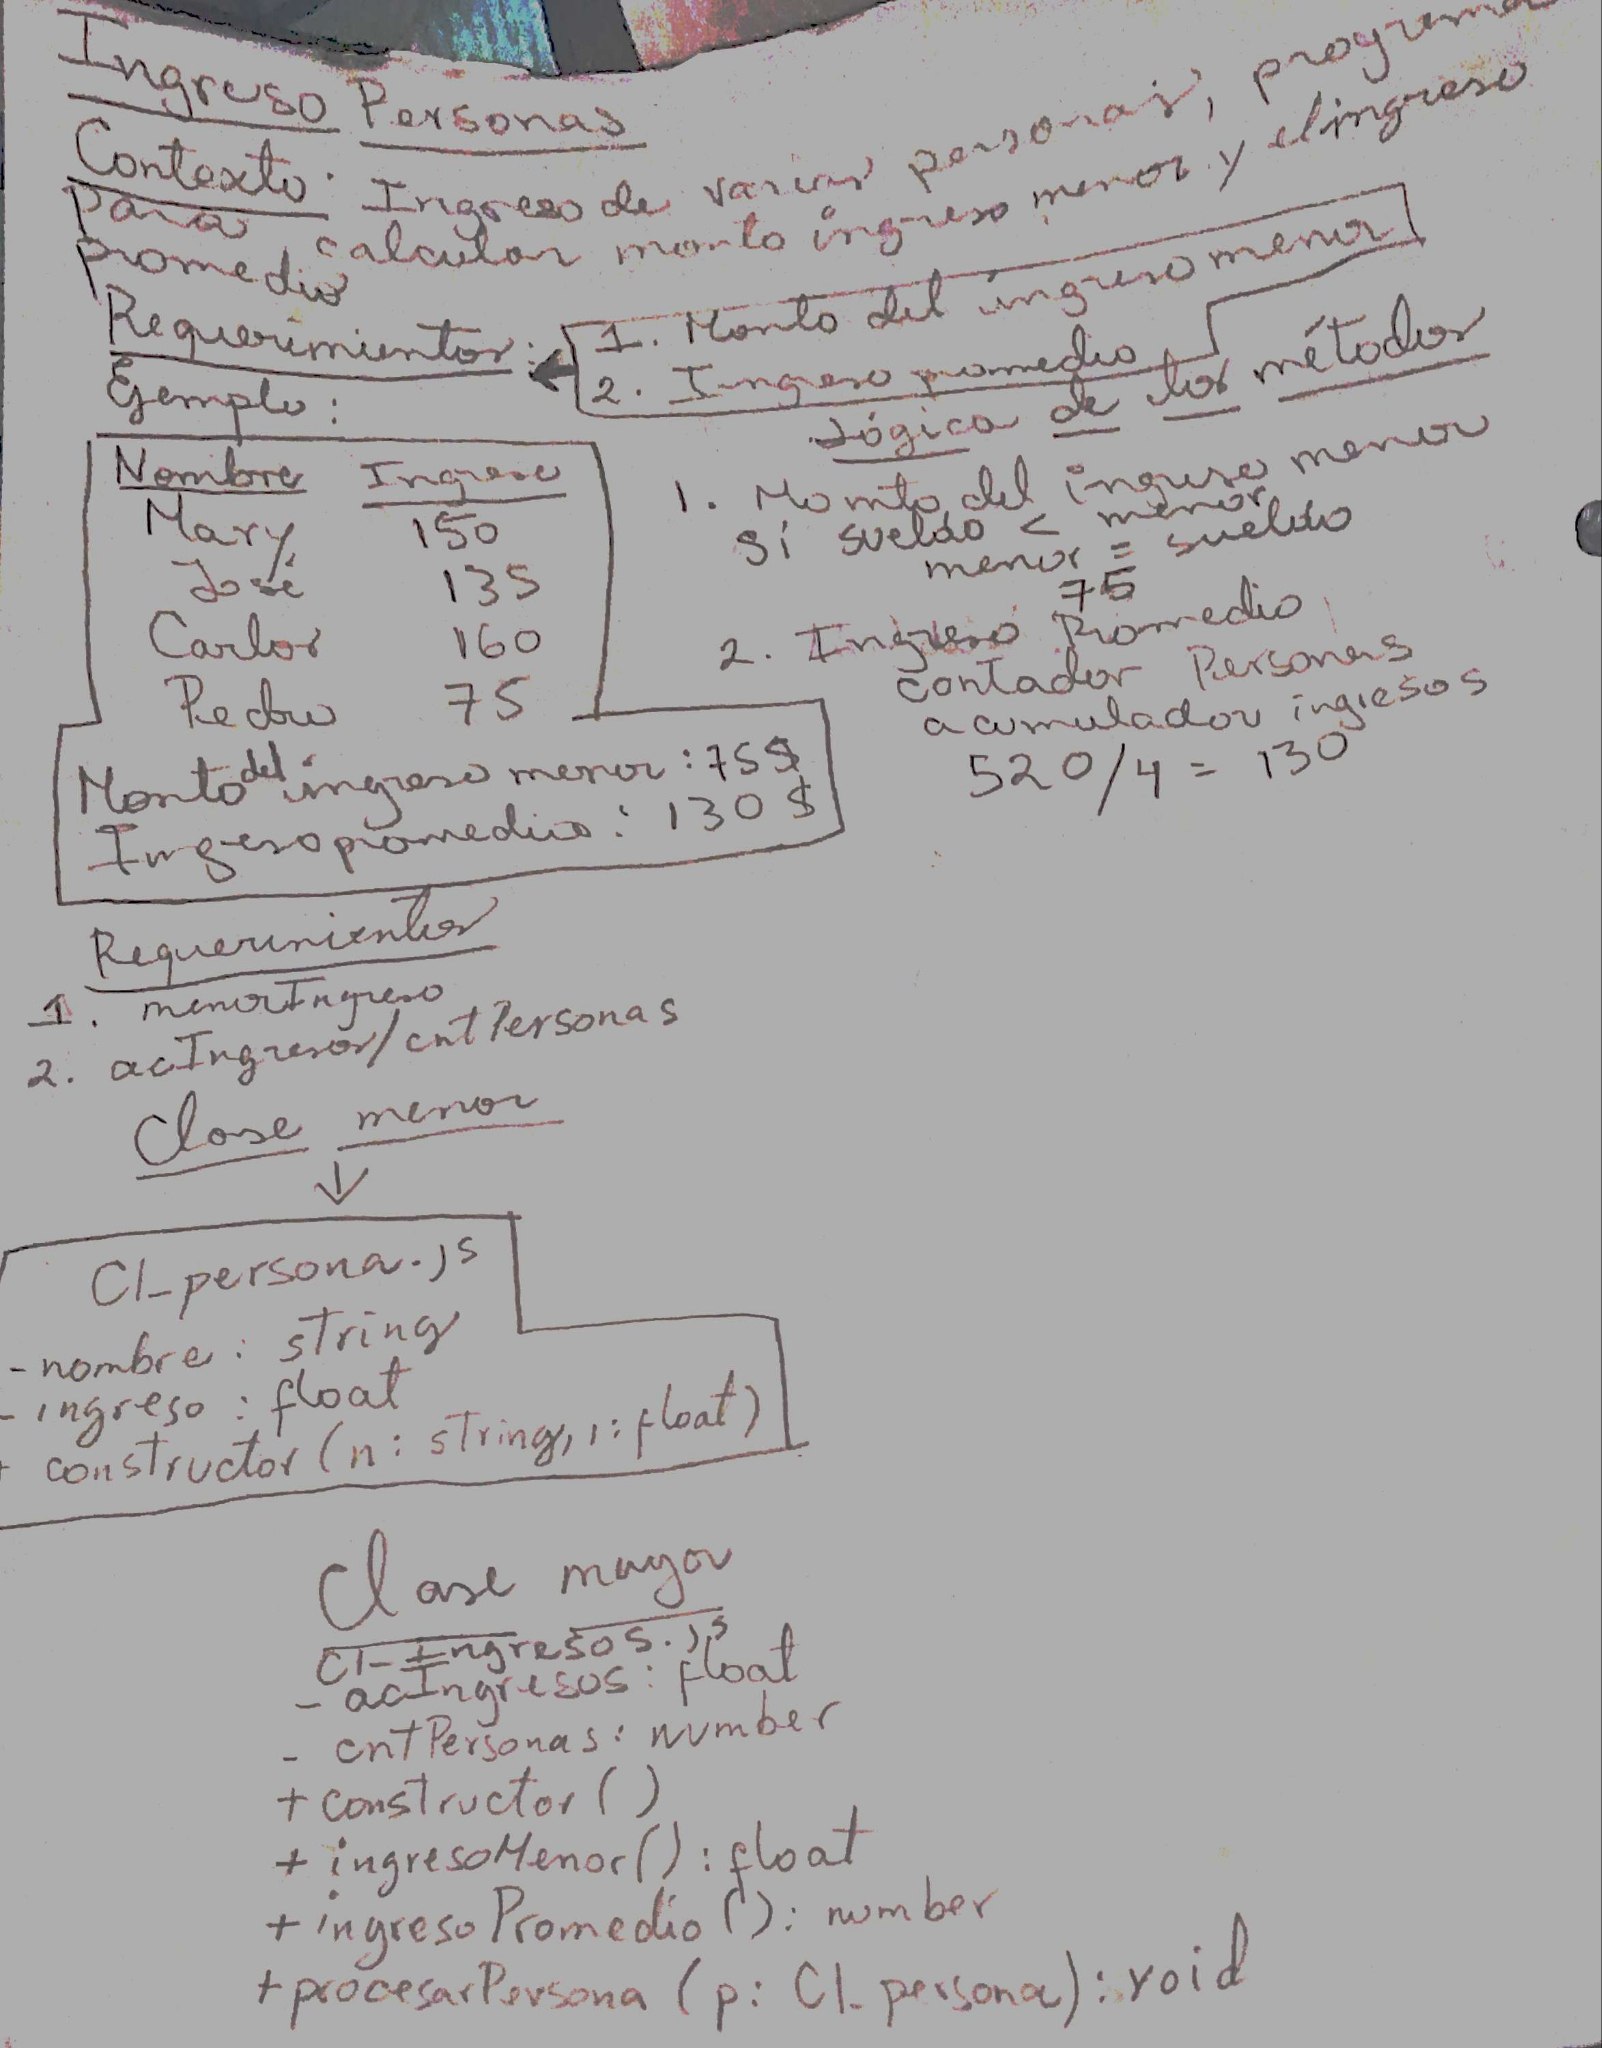 Ingreso Personas
Contexto: Ingreso de varias personas, programa
para calcular monto ingreso menor y el ingreso
promedio
Requerimientos:
1. Monto del ingreso menor
2. Ingreso promedio
Ejemplo:
Nombre Ingreso
Mary 150
José 135
Carlos 160
Pedro 75
Monto del ingreso menor: 75$
Ingreso promedio: 130$
Lógica de los métodos
1. Monto del ingreso menor
Si sueldo < menor
menor = sueldo
75
2. Ingreso Promedio
contador Personas
acumulador ingresos
520/4 = 130
Requerimientos
1. menorIngreso
2. acIngresos/cntPersonas
Clase menor
Cl_persona.js
- nombre: string
- ingreso: float
+ constructor(n: string, i: float)
Clase mayor
Cl_Ingresos.js
- acIngresos: float
- cntPersonas: number
+ constructor()
+ ingresoMenor(): float
+ ingresoPromedio(): number
+ procesarPersona(p: Cl_persona): void